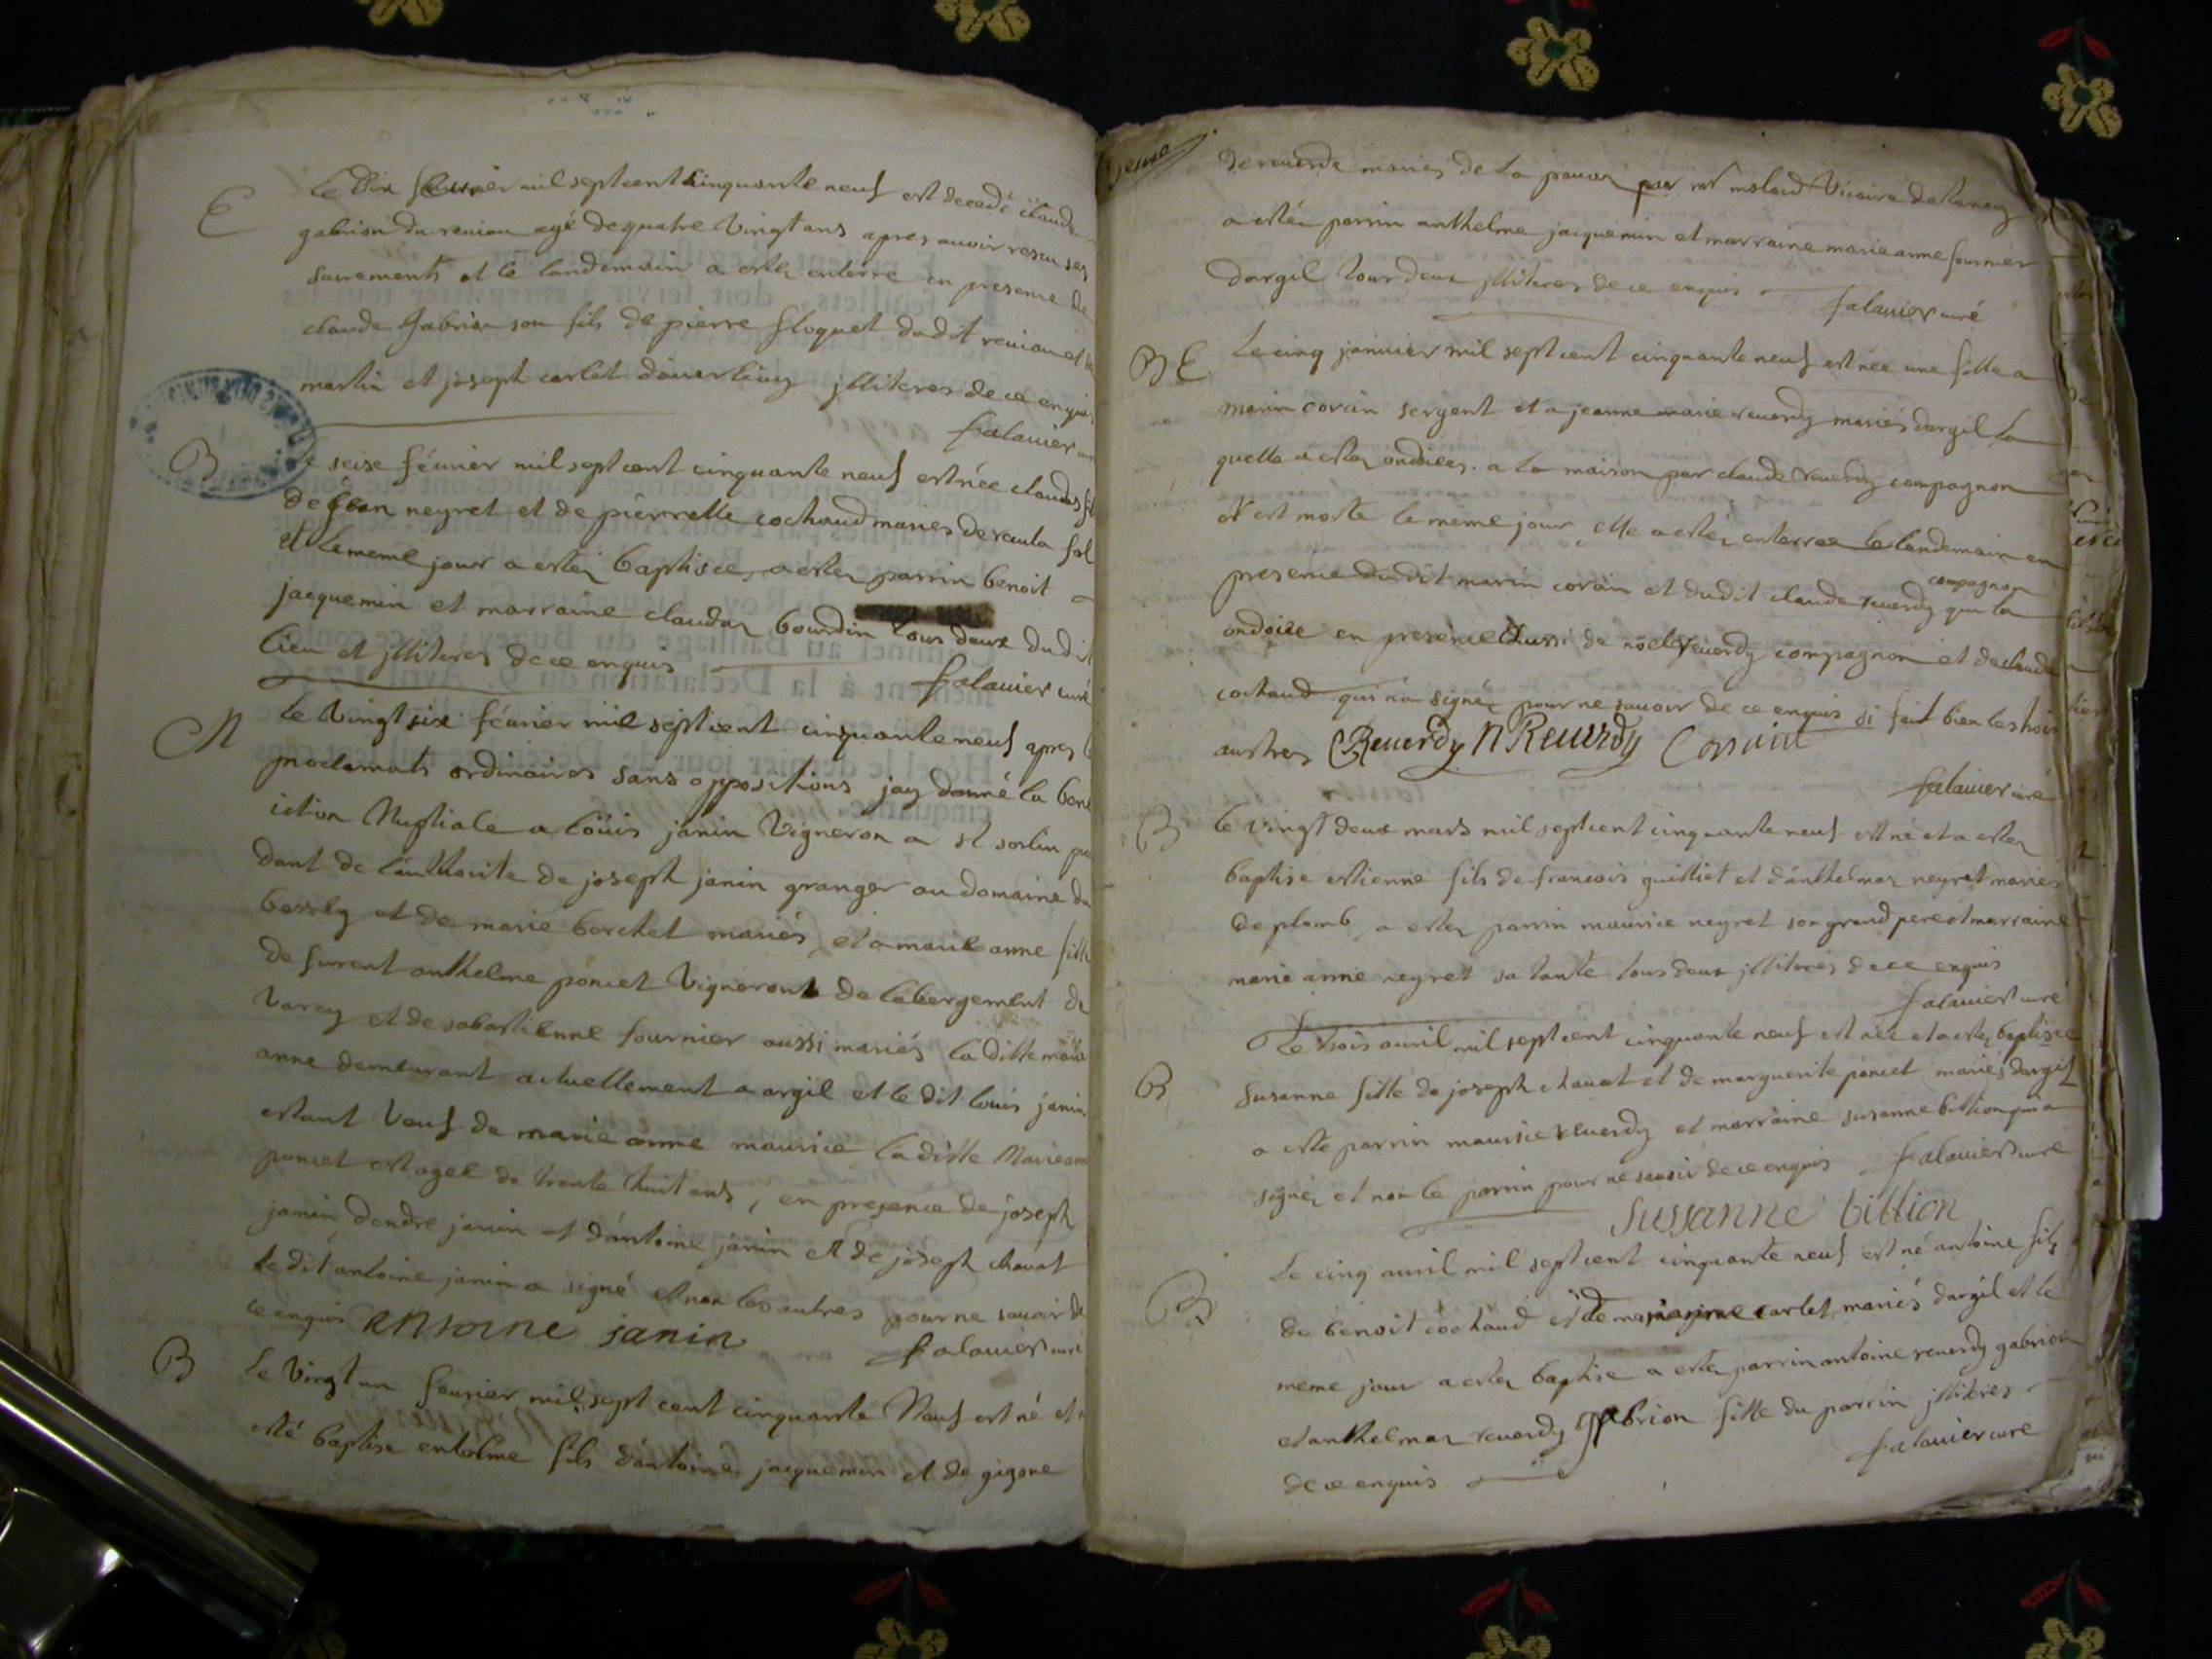 E
Le dix feuvrier mil sept cent cinquante neuf est decedé claude
gabrion du reniou agé de quatre vingt ans apres auoir rescu ses
sacrements et le landemain a estez enterre en presence de
claude Gabrion son fils de pierre floquet dudit reniou et de
martin et joseph carlet illiteres de ce enquis
falauier
B
Le seise féurier mil sept cent cinquante neuf est née claudaz fil
de jean neyret et de pierrette cochaud maries de
et le meme jour a estez baptisée, a estez parrin benoit
jacquemin et marraine claudaz bourdin tous deux dudit
lieu et illiteres de ce enquis
falauier curé
M
Le vingt six féurier mil sept cent cinquante neuf apres les
proclamats ordinaires sans oppositions jay donné la bene
iction Nuptiale a loüis janin Vigneron a st sorlin
dant de l'authorite de joseph janin granger au domaine du
et de marie berchet mariés, et a marie anne fille
de furent anthelme poncet Vigneront de labergement de
varey et de sabastienne fournier aussi mariés la ditte marie
anne demeurant actuellement a argil et le dit louis janin
estant veuf de marie anne maurice la ditte Marie anne
poncet est agee de trente huit ans, en presence de joseph
janin, dendre janin et d'antoine janin et de joseph chavat
le dit antoine janin a signé et non les autres pour ne sauoir de
ce enquis antoine janin
falauier curé
B
Le vingt un feurier mil sept cent cinquante Neuf est né et a
esté baptise entelme fils d'antoine jacquemin et de gigone
de reuerdi mariés de la par mr molard Vicaire de
a estée parrin anthelme jacquemin et marraine marie anne fournier
dargil tous deux illiteres de ce enquis
falauier curé
B E
Le cinq januier mil sept cent cinquante neuf est née une fille a
marin corcin sergent et a jeanne marie reuerdy mariés dargil la
quelle a estez ondoiée a la maison par claude reuerdy compagnon
et est morte le meme jour, elle a estez enterree le landemain en
presence dudit marin corcin et dudit claude reuerdy compagnon qui la
ondoiee en presence aussi de noel reuerdy compagnon et de claude
cochaud qui na signéz pour ne sauoir de ce enquis si fait bien les trois
austres C Reuerdy N Reuerdy Corcin
falauier curé
B
Le vingt deux mars mil sept cent cinquante neuf est né et a estez
baptise estienne fils de francois guilliot et d'anthelmaz neyret mariés
de plomb, a estez parrin maurice neyret son grand pere et marraine
marie anne neyret sa tante tous deux illiterés de ce enquis
falauier curé
B
Le trois auril mil sept cent cinquante neuf est née et a estez baptisee
susanne fille de joseph chavat et de marguerite poncet mariés dargil
a esté parrin maurice reuerdy et marraine susanne billion qui a
signéz et non le parrin pour ne sauoir de ce enquis falauier curé
Susanne billion
B
Le cinq auril mil sept cent cinquante neuf est né antoine fils
de benoit cochaud et de marianne carlet mariés dargil et le
meme jour a estez baptise a este parrin antoine reuerdy gabrion
et anthelmaz reuerdy gabrion fille du parrin illiteres
de ce enquis
falauier curé